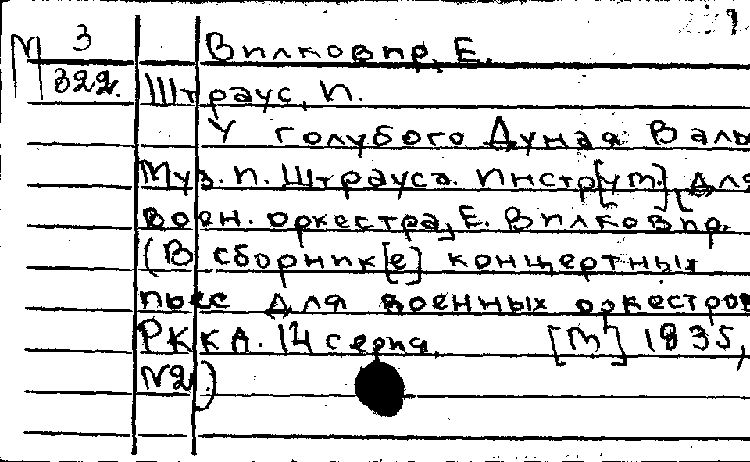 М 3
322.
Вилковир, Е.
Штраус, И.
У голубого Дуная Валь
Муз. И. Штрауса. Инстр[ум], для
воен. оркестра, Е. Вилковир.
(В сборник[е] концертных
пьес для военных оркестров
РККА. 14 серия. [М] 1935,
N2)